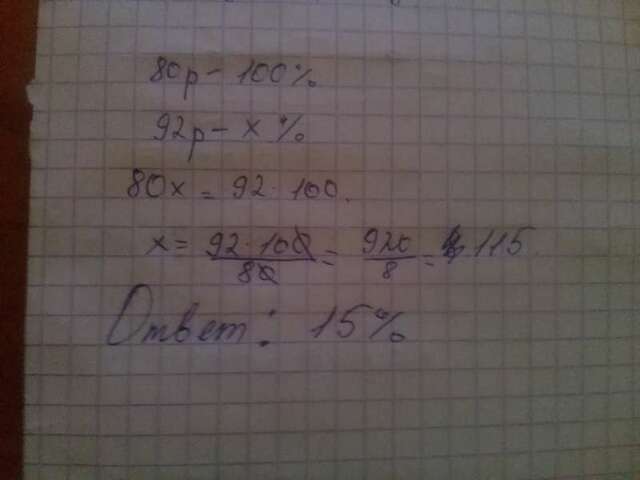 80р - 100%
92р - х %
80х = 92 · 100.
х = 92 · 100 / 80 = 920 / 8 = 115.
Ответ: 15%